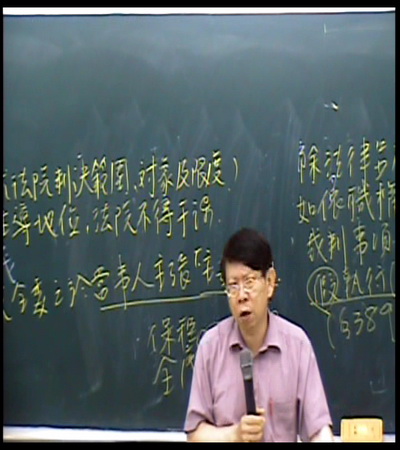 法院判決範圍、對象及限度)
主導地位,法院不得干涉.
當事人主張「主
保
全
除法律另
如依職權
裁判事項
假執行
(§389